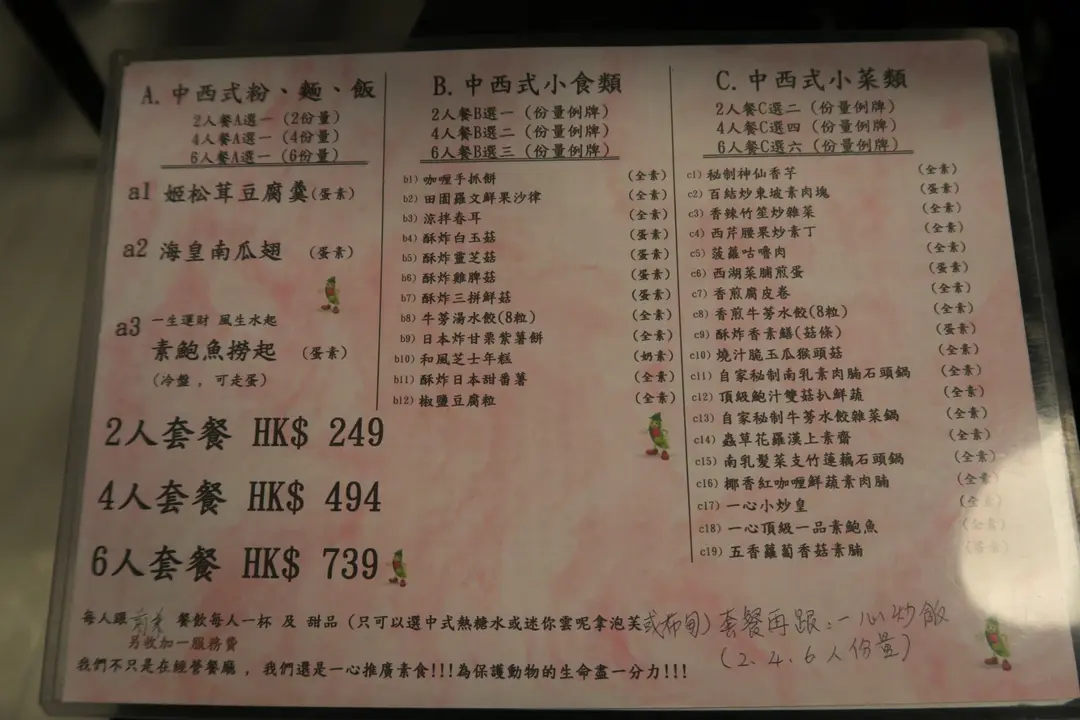 A. 中西式粉、麵、飯
2人餐A選一 (2份量)
4人餐A選一 (4份量)
6人餐A選一 (6份量)
a1 姬松茸豆腐羹(蛋素)
a2 海皇南瓜翅 (蛋素)
a3 一生運財 風生水起
素鮑魚撈起 (蛋素)
(冷盤,可走蛋)
2人套餐 HK$ 249
4人套餐 HK$ 494
6人套餐 HK$ 739
B. 中西式小食類
2人餐B選一 (份量例牌)
4人餐B選二 (份量例牌)
6人餐B選三 (份量例牌)
b1) 咖喱手抓餅 (全素)
b2) 田園羅文鮮果沙律 (全素)
b3) 涼拌春耳 (全素)
b4) 酥炸白玉菇 (蛋素)
b5) 酥炸靈芝菇 (蛋素)
b6) 酥炸雞脾菇 (蛋素)
b7) 酥炸三拼鮮菇 (蛋素)
b8) 牛蒡湯水餃(8粒) (全素)
b9) 日本炸甘栗紫薯餅 (全素)
b10) 和風芝士年糕 (奶素)
b11) 酥炸日本甜番薯 (全素)
b12) 椒鹽豆腐粒 (全素)
C. 中西式小菜類
2人餐C選二 (份量例牌)
4人餐C選四 (份量例牌)
6人餐C選六 (份量例牌)
c1) 秘制神仙香芋 (全素)
c2) 百結炒東坡素肉塊 (蛋素)
c3) 香辣竹笙炒雜菜 (全素)
c4) 西芹腰果炒素丁 (全素)
c5) 菠蘿咕嚕肉 (全素)
c6) 西湖菜脯煎蛋 (蛋素)
c7) 香煎腐皮卷 (全素)
c8) 香煎牛蒡水餃(8粒) (全素)
c9) 酥炸香素鱔(菇條) (蛋素)
c10) 燒汁脆玉瓜猴頭菇 (全素)
c11) 自家秘制南乳素肉腩石頭鍋 (全素)
c12) 頂級鮑汁雙菇扒鮮蔬 (全素)
c13) 自家秘制牛蒡水餃雜菜鍋 (全素)
c14) 蟲草花羅漢上素齋 (全素)
c15) 南乳髮菜支竹蓮藕石頭鍋 (全素)
c16) 椰香紅咖喱鮮蔬素肉腩 (全素)
c17) 一心小炒皇 (全素)
c18) 一心頂級一品素鮑魚 (全素)
c19) 五香蘿蔔香菇素腩
每人跟 餐飲每人一杯 及 甜品 (只可以選中式熱糖水或迷你雲呢拿泡芙或布甸) 套餐再跟:一心炒飯
另收加一服務費 (2.4.6人份量)
我們不只是在經營餐廳,我們還是一心推廣素食!!!為保護動物的生命盡一分力!!!